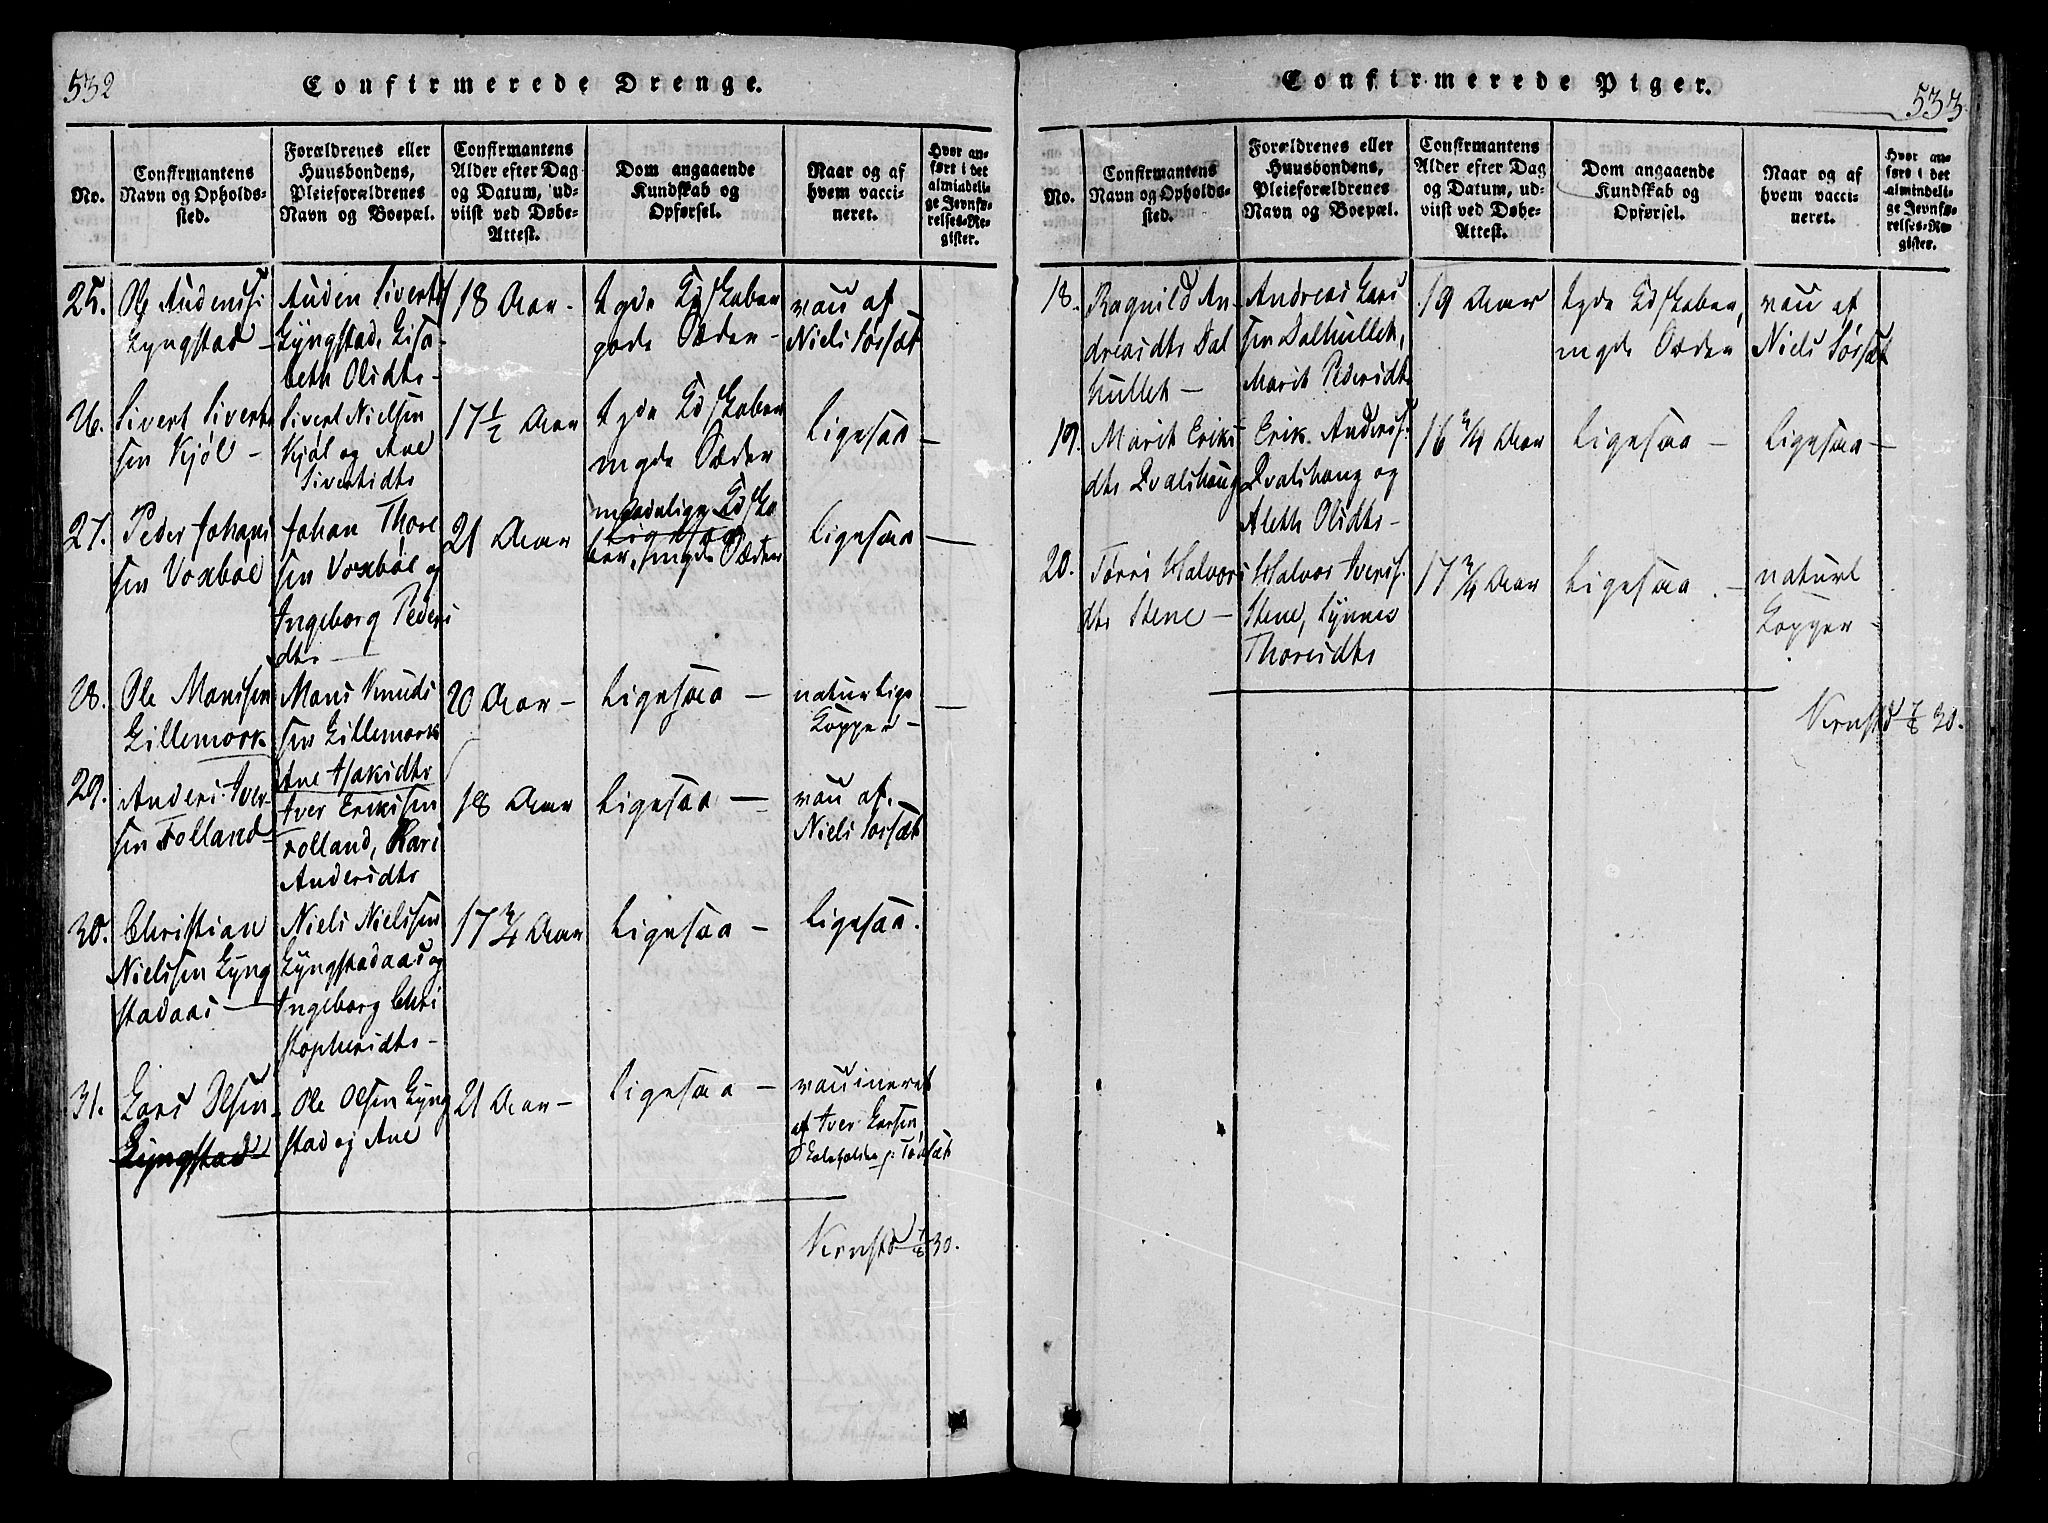 532
Confirmerede Drenge.
No.
Confirmantens
Navn og Opholds-
sted.
Forældrenes eller
Huusbondens,
Pleieforældrenes
Navn og Boepæl.
Confirmantens
Alder efter Dag
og Datum, ud-
viist ved Døbe-
Attest.
Dom angaaende
Kundskab og
Opførsel.
Naar og af
hvem vacci-
neret.
Hvor an-
ført i det
almindeli-
ge Jevnfø-
relses-Re-
gister.
25.
Ole Audenss:
Lyngstad -
Auden Siverts
Lyngstad, Lisa-
beth Olsdtr -
18 Aar -
gode Sæder -
af
Niels Sørsæt
26.
Sivert Sivert
sen Kjöl -
Sivert Nielsen
Kjöl og Ane
Sivertsdtr
17 1/2 Aar
Sæder
Ligesaa -
27.
Peder Johans
sen Voxböe
Johan Thore
sen Voxböe og
Ingeborg Peders
dtr -
21 Aar
maadelige
Ligesaa
Sæder
Ligesaa -
28.
Ole Monssen
Lillemork
Mons Knuds
sen Lillemork
Ane Isaksdtr
20 Aar -
Ligesaa -
naturlige
Kopper -
29.
Anders Iver-
sen Tolland -
Iver Erikssen
Tolland, Kari
Andersdtr
18 Aar
Ligesaa -
af
Niels Sørsæt
30.
Christian
Nielssen Lyng
stadaas -
Niels Nielssen
Lyngstadaas og
Ingeborg Chri
stophersdtr -
17 3/4 Aar
Ligesaa -
Ligesaa.
31.
Lars Olsen -
Lyngstad
Ole Olsen Lyng
stad og Ane
21 Aar -
Ligesaa -
vaccineret
af Iver Larsen
Confirmerede Piger.
533.
No.
Confirmantens
Navn og Opholds-
sted.
Forældrenes eller
Huusbondens,
Pleieforældrenes
Navn og Boepæl.
Confirmantens
Alder efter Dag
og Datum, ud-
viist ved Døbe-
Attest.
Dom angaaende
Kundskab og
Opførsel.
Naar og af
hvem vacci-
neret.
Hvor an-
ført i det
almindeli-
ge Jevnfø-
relses-Re-
gister.
18.
Ragnild An-
dreasdtr Dal
hullet -
Andreas Lars
sen Dalhullet,
Marit Pedersdtr
19 Aar
Sæder
af
Niels Sørsæt
19.
Marit Eriks
dtr Dvalshoug
Erik Anderss:
Dvalshoug og
Aleth Olsdtr -
16 3/4 Aar
Ligesaa -
Ligesaa -
20.
Torri Halvors
dtr Stene -
Halvor Iverss.
Stene, Synnev
Thoresdtr
17 3/4 Aar
Ligesaa. -
naturl
Kopper -